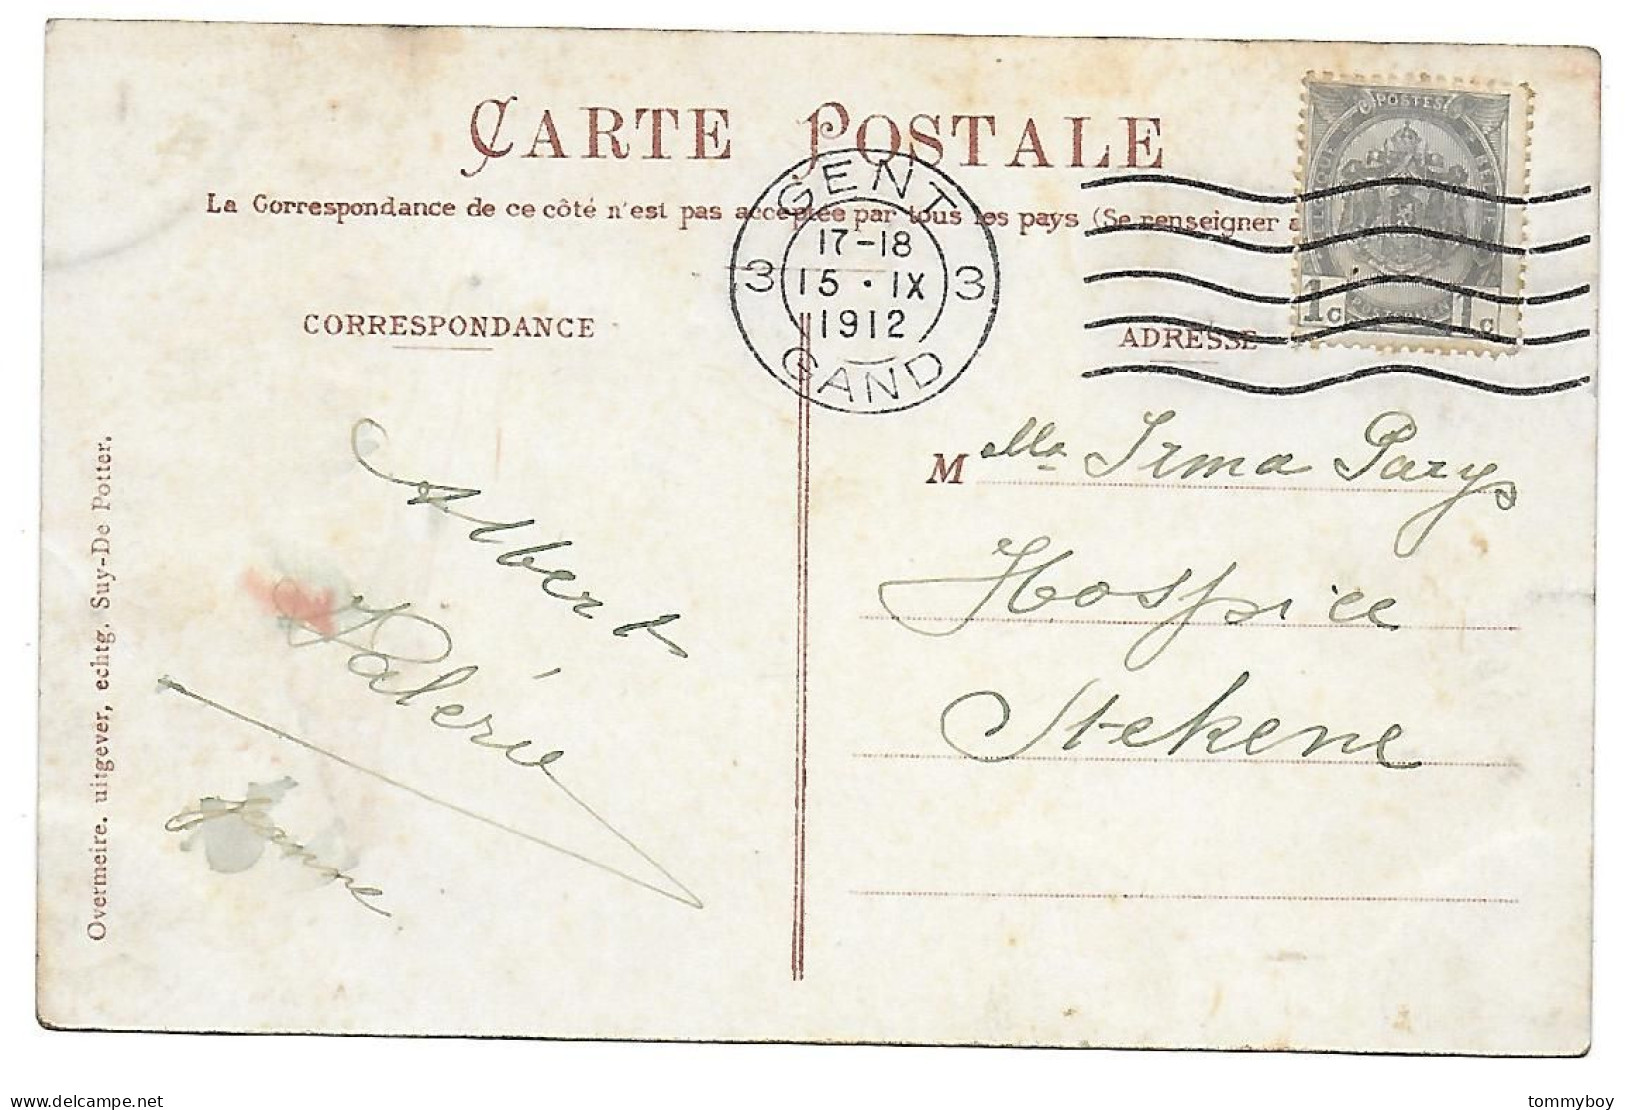 CARTE POSTALE
La Correspondance de ce côté n'est pas acceptée par tous les pays (Se renseigner a
POSTES
1c 1c
GENT
17-18
3 15 · IX 3
1912
GAND
CORRESPONDANCE
ADRESSE
Albert
Valérie
Jeanne
Mlle Irma Parys
Hospice
Stekene
Overmeire. uitgever, echtg. Suy-De Potter.
tommyboy